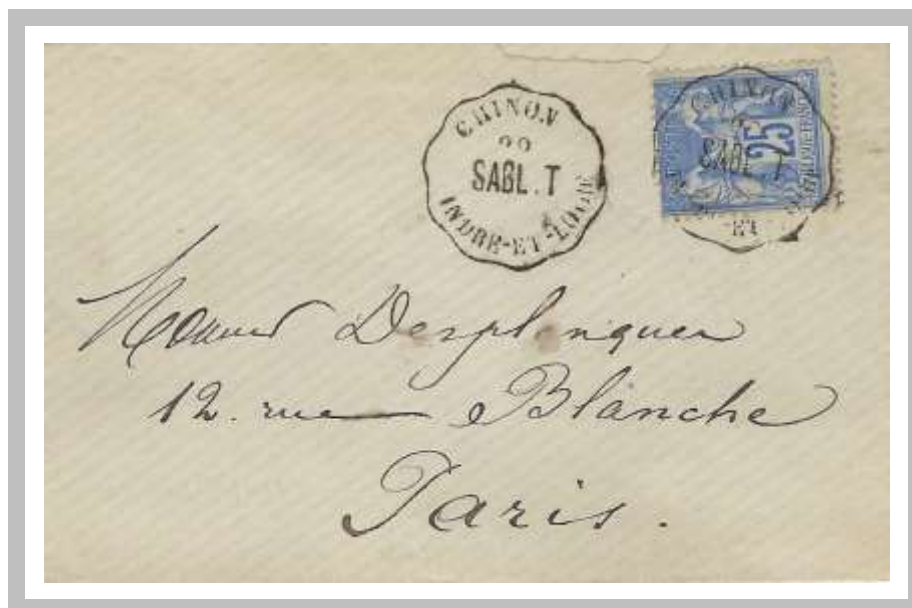 CHINON
SABL. T
INDRE-ET-LOIRE
CHINON
25
SABL. T
ET
Desplanques
12. rue Blanche
Paris.